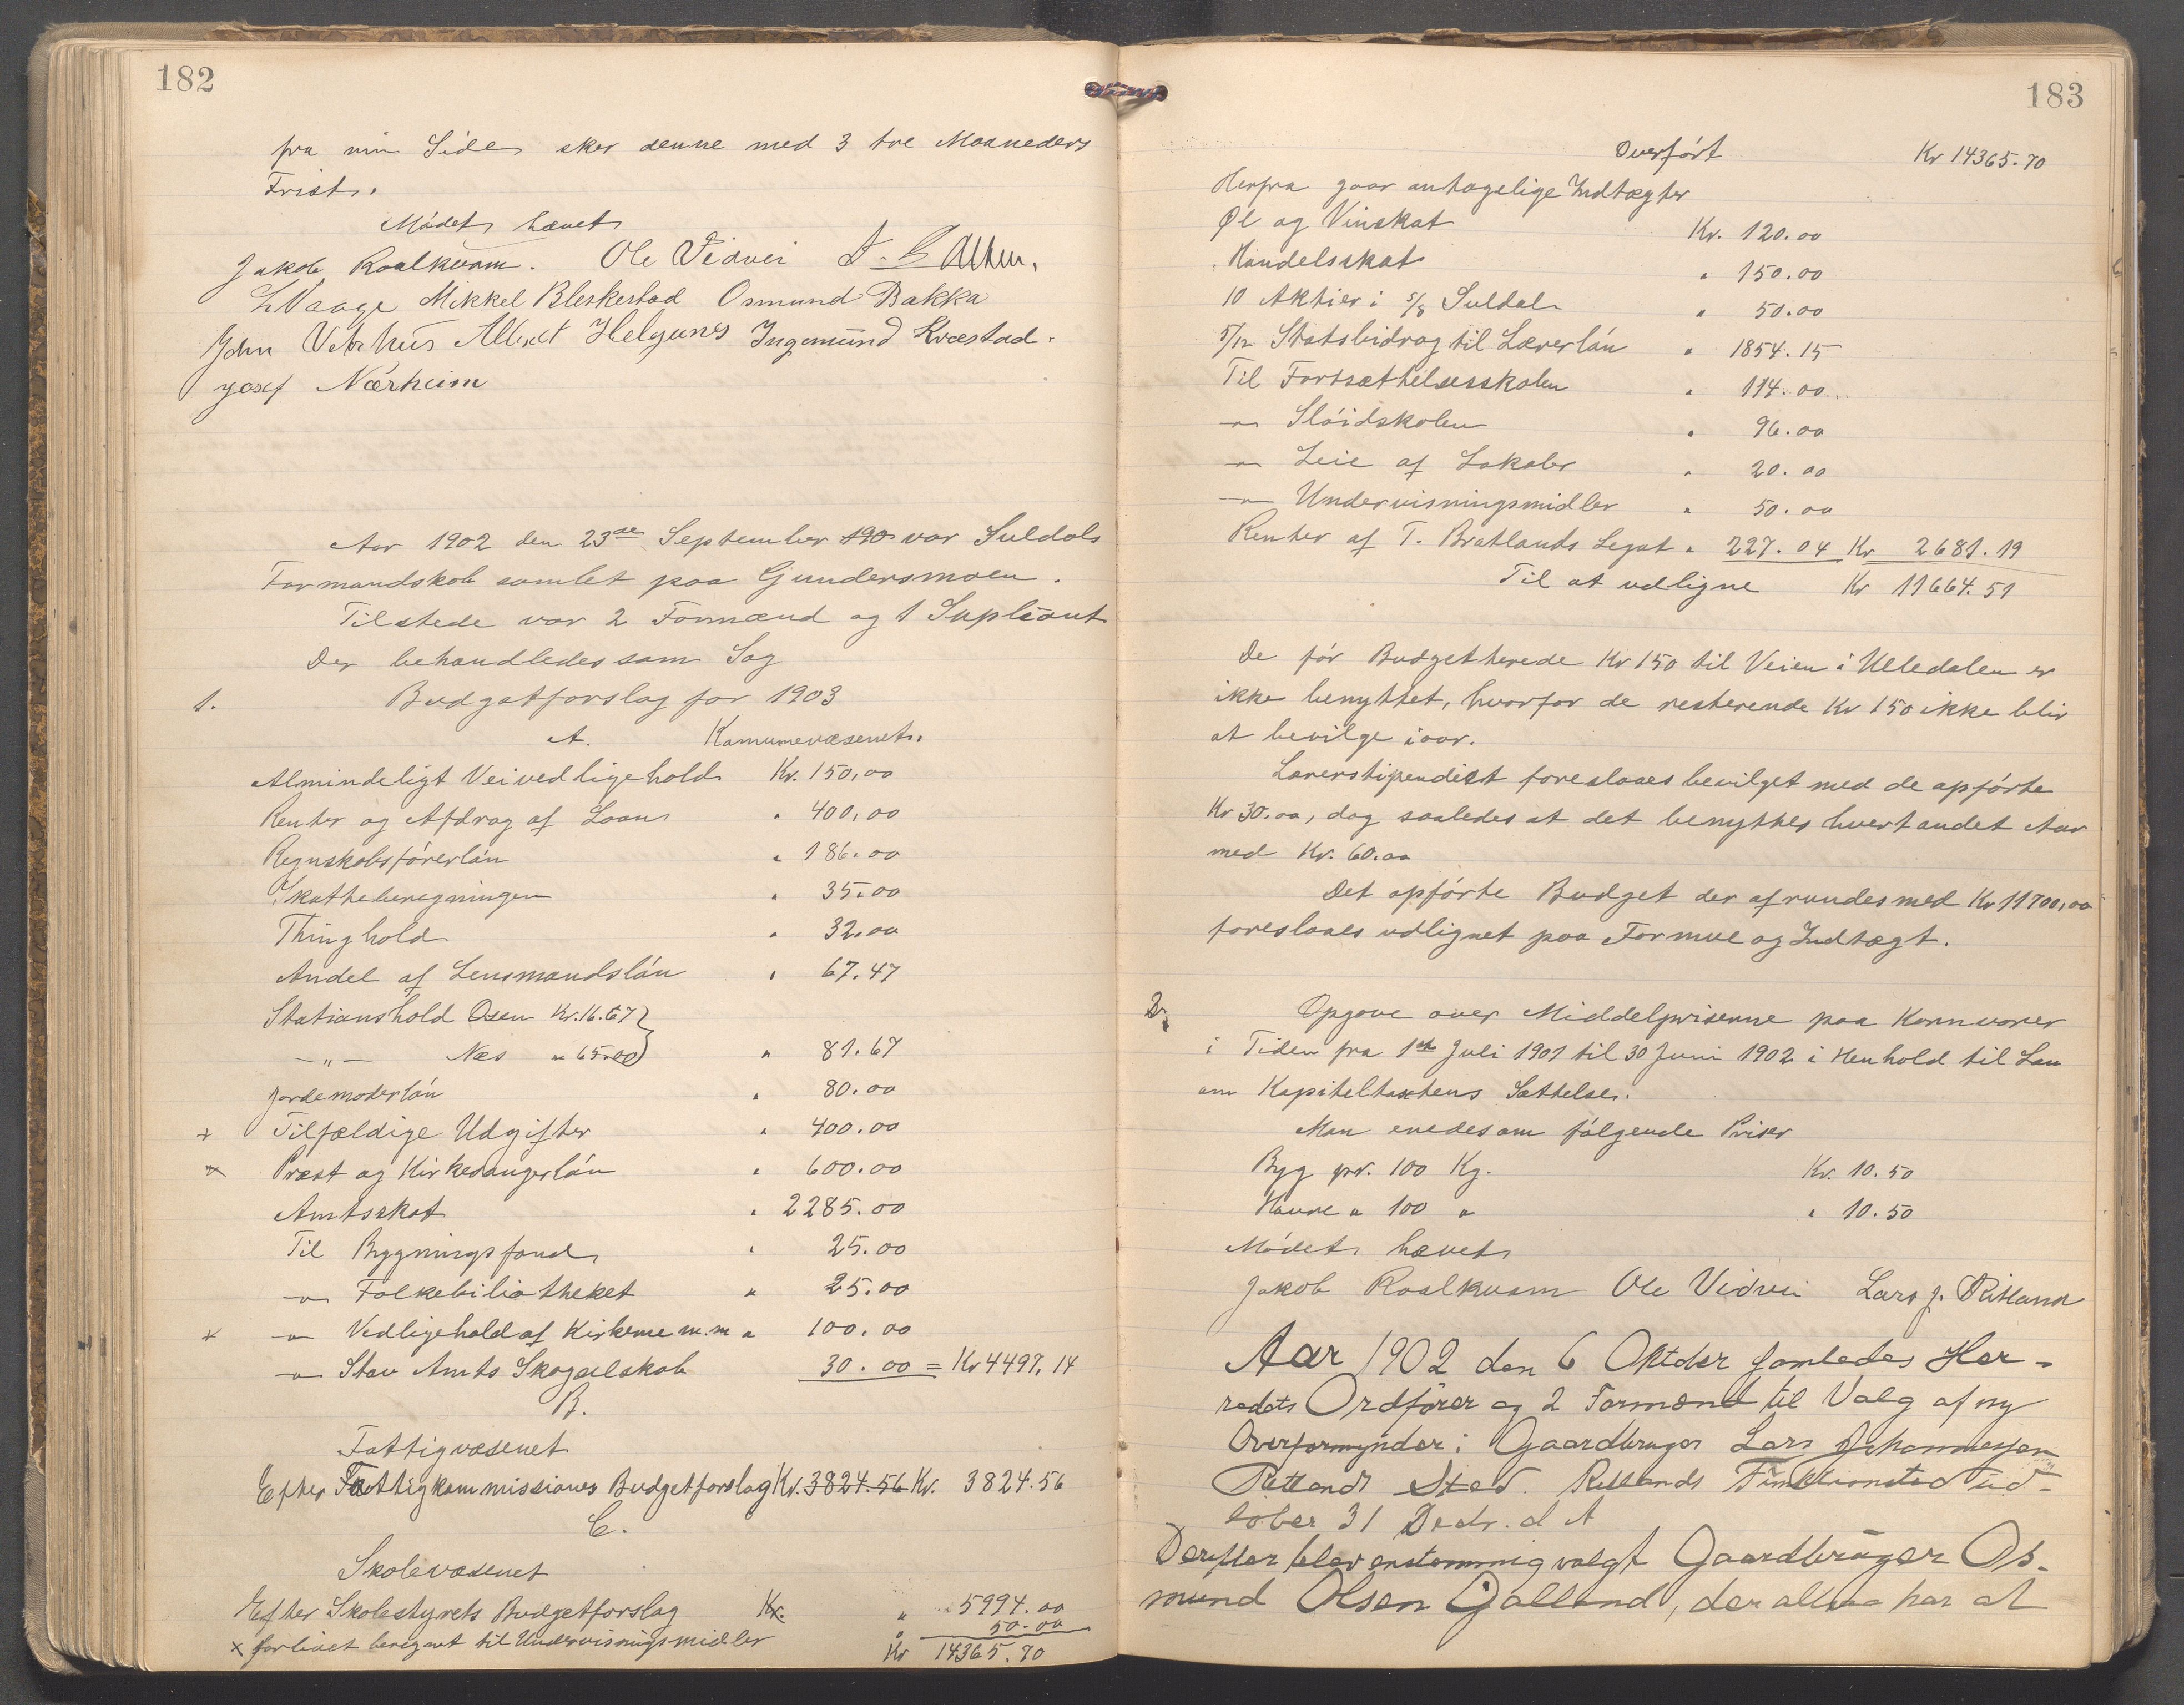 182
fra min Side sker denne med 3 tre Maaneders
Frist.
Mödet hævet
Jakob Roalkvam. Ole Vidvei
L Vaage Mikkel Bleskestad Osmund Bakka
John Vetrhus Albert Helgenes Ingemund Kvæstad.
Josef Nærheim
Aar 1902 den 23de September 190 var Suldals
Formandskab samlet paa Gundersmoen.
Tilstede var 2 Formænd og 1 Supleant
Der behandledes som Sag
1. Budgetforslag for 1903
A. Kommunevæsenet.
Almindeligt Veivedligehold Kr. 150,00
Renter og Afdrag af Laan " 400,00
Regnskabsförerlön " 186.00
Skatteberegningen " 35.00
Thinghold " 32.00
Andel af Lensmandslön " 67.47
Stationshold Osen Kr. 16.67
-"- Næs " 65.00 } " 81.67
Jordemoderlön " 80.00
+ Tilfældige Udgifter " 400.00
x Præst og Kirkesangerlön " 600.00
Amtsskat " 2285.00
Til Bygningsfond " 25.00
-"- Folkebiliotheket " 25.00
x -"- Vedligehold af Kirkerne m.m " 100.00
-"- Stav Amts Skogselskab 30.00 = Kr 4497,14
B.
Fattigvæsenet
Efter Fattigkommissiones Budgetforslag Kr. 3824.56 Kr. 3824.56
C.
Skolevæsenet
Efter Skolestyrets Budgetforslag Kr. " 5994.00
x forlivet beregnet til Undervisningsmidler " 50.00
Kr 14365.70
183
Overfört Kr 14365.70
Herfra gaar antagelige Indtægter
Øl og Vinskat Kr. 120.00
Handelsskat " 150.00
10 Aktier i s/s Suldal " 50.00
5/12 Statsbidrag til Lærerlön " 1854.15
Til Fortsættelsesskolen " 114.00
-"- Slöidskolen " 96.00
-"- Leie af Lokaler " 20.00
-"- Undervisningsmidler " 50.00
Renter af T. Bratlands Legat " 227.04 Kr 2681.19
Til at udligne Kr 11664.51
De för Budgetterede Kr 150 til Veien i Ulledalen er
ikke benyttet, hvorfor de resterende Kr 150 ikke blir
at bevilge iaar.
Lærerstipendiet foreslaaes bevilget med de opförte
Kr 30.00, dog saaledes at det benyttes hvert andet Aar
med Kr. 60.00
Det opförte Budget der afrundes med Kr 11700,00
foreslaaes udlignet paa Formue og Indtægt.
2. Opgave over Middelpriserne paa Kornvarer
i Tiden fra 1ste Juli 1901 til 30 Juni 1902 i Henhold til Lov
om Kapiteltaxtens Sættelse.
Man enedes om fölgende Priser
Byg pr. 100 Kg. Kr. 10.50
Havre " 100 " " 10.50
Mödet hævet
Jakob Roalkvam Ole Vidvei Lars J. Ritland
Aar 1902 den 6 Oktober samledes Her-
redets Ordförer og 2 Formænd til Valg af ny
Overformynder i Gaardbruger Lars Johannessen
Ritlands Sted. Ritlands Funktionstid ud-
löber 31 Decbr. d A
Derefter blev enstemmig valgt Gaardbruger Os-
mund Olsen Gjalland, der altsaa har at